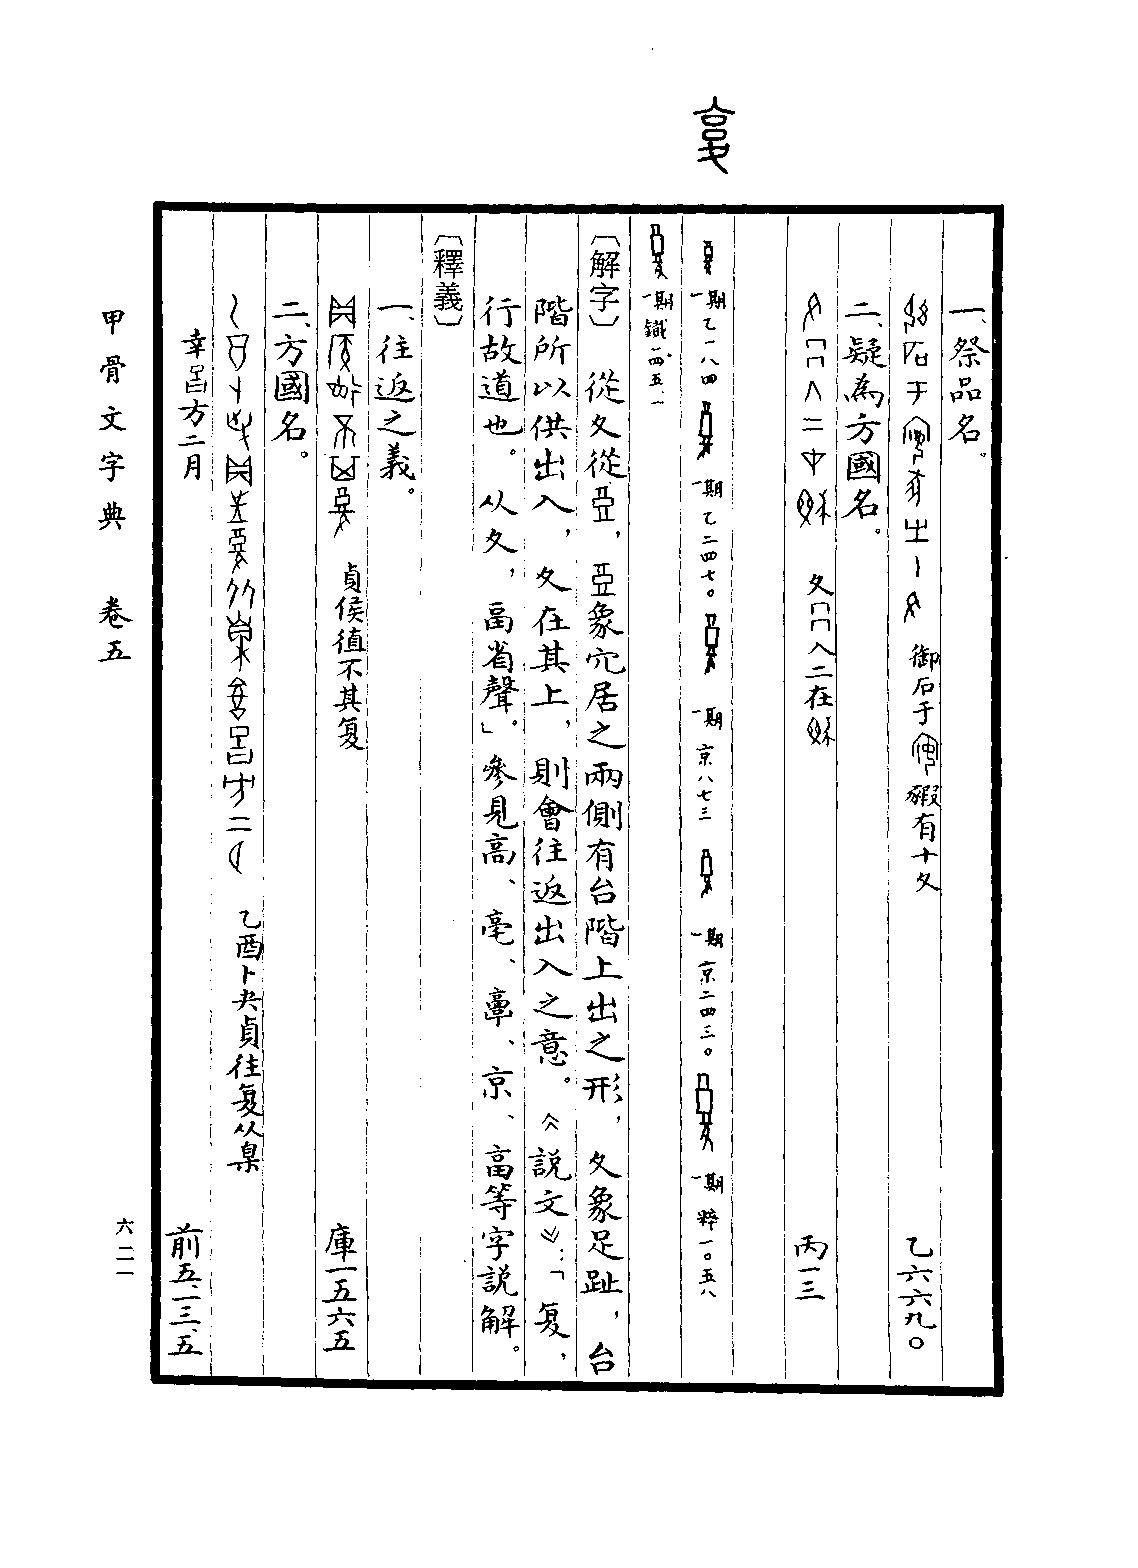 一、祭品名。
御石于 有十夂 乙六六九〇
二、疑為方國名。
夂 入二在 丙一三
一期 乙一八四 一期 乙二四七〇 一期 京八七三 一期 京二四三〇 一期 粹一〇五八
一期 鐵一四五.一
〔解字〕從夂從亞，亞象穴居之兩側有台階上出之形，夂象足趾，台
階所以供出入，夂在其上，則會往返出入之意。《說文》：「复，
行故道也。从夂，畗省聲。」參見高、亳、𩫏、京、畗等字說解。
〔釋義〕
一、往返之義。
貞侯值不其复 庫一五六五
二、方國名。
乙酉卜 貞往复从臬
幸𠮷方二月 前五.一三.五
甲骨文字典 卷五 六二一